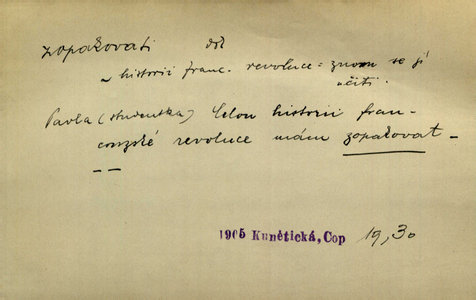 zopakovati dok
~ historii franc. revoluce = znovu se jí
učiti.
Pavla (studentka) Celou historii fran-
couzské revoluce mám zopakovat -
- -
1905 Kunětická, Cop 19,30